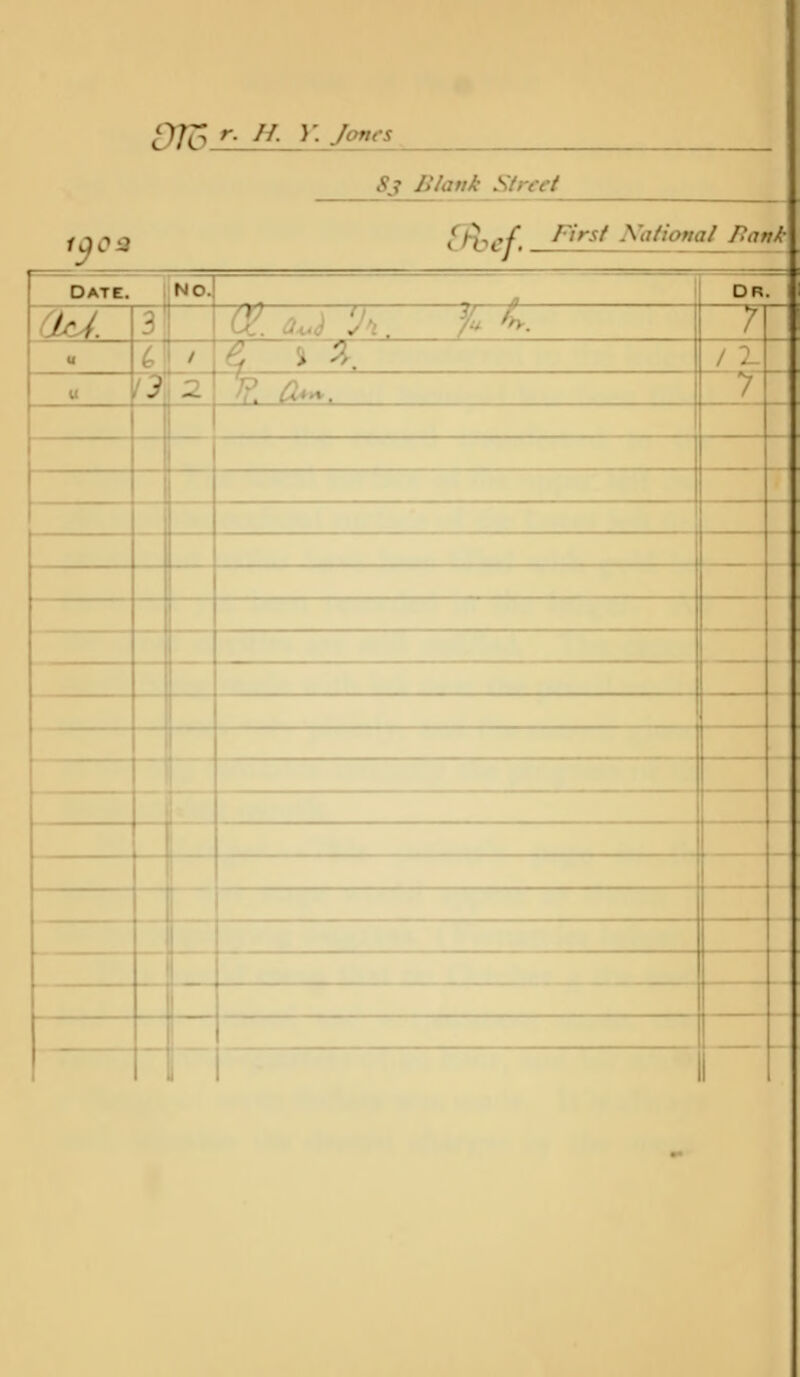 Mr. H. Y. Jones
83 Blank Street
1902 Ref. First National Bank
DATE. NO. DR.
Oct. 3 7
" 6 1 12
" 13 2 P. Am. 7